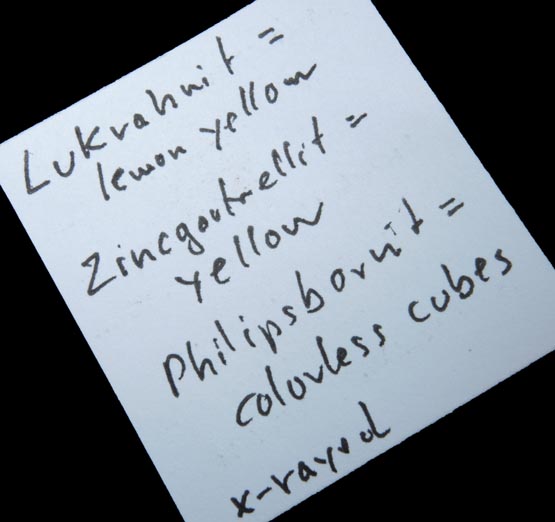 Lukrahnit =
lemon yellow
Zincgartrellit =
yellow
Philipsbornit =
colorless cubes
x-rayed